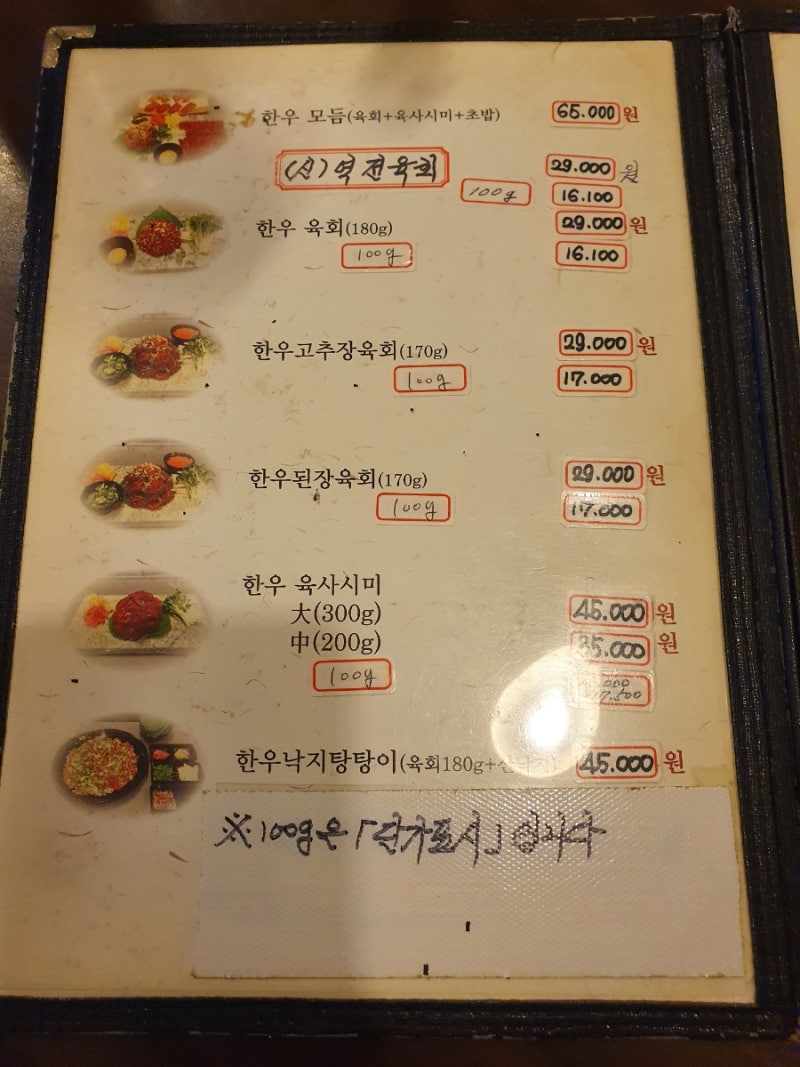 한우 모듬(육회+육사시미+초밥) 65.000원
(신)역전육회 29.000원
100g 16.100
한우 육회(180g) 29.000원
100g 16.100
한우고추장육회(170g) 29.000원
100g 17.000
한우된장육회(170g) 29.000원
100g 17.000
한우 육사시미
大(300g) 45.000원
中(200g) 35.000원
100g 17.500
한우낙지탕탕이(육회180g+산낙지) 45.000원
※100g은 「단가표시」입니다